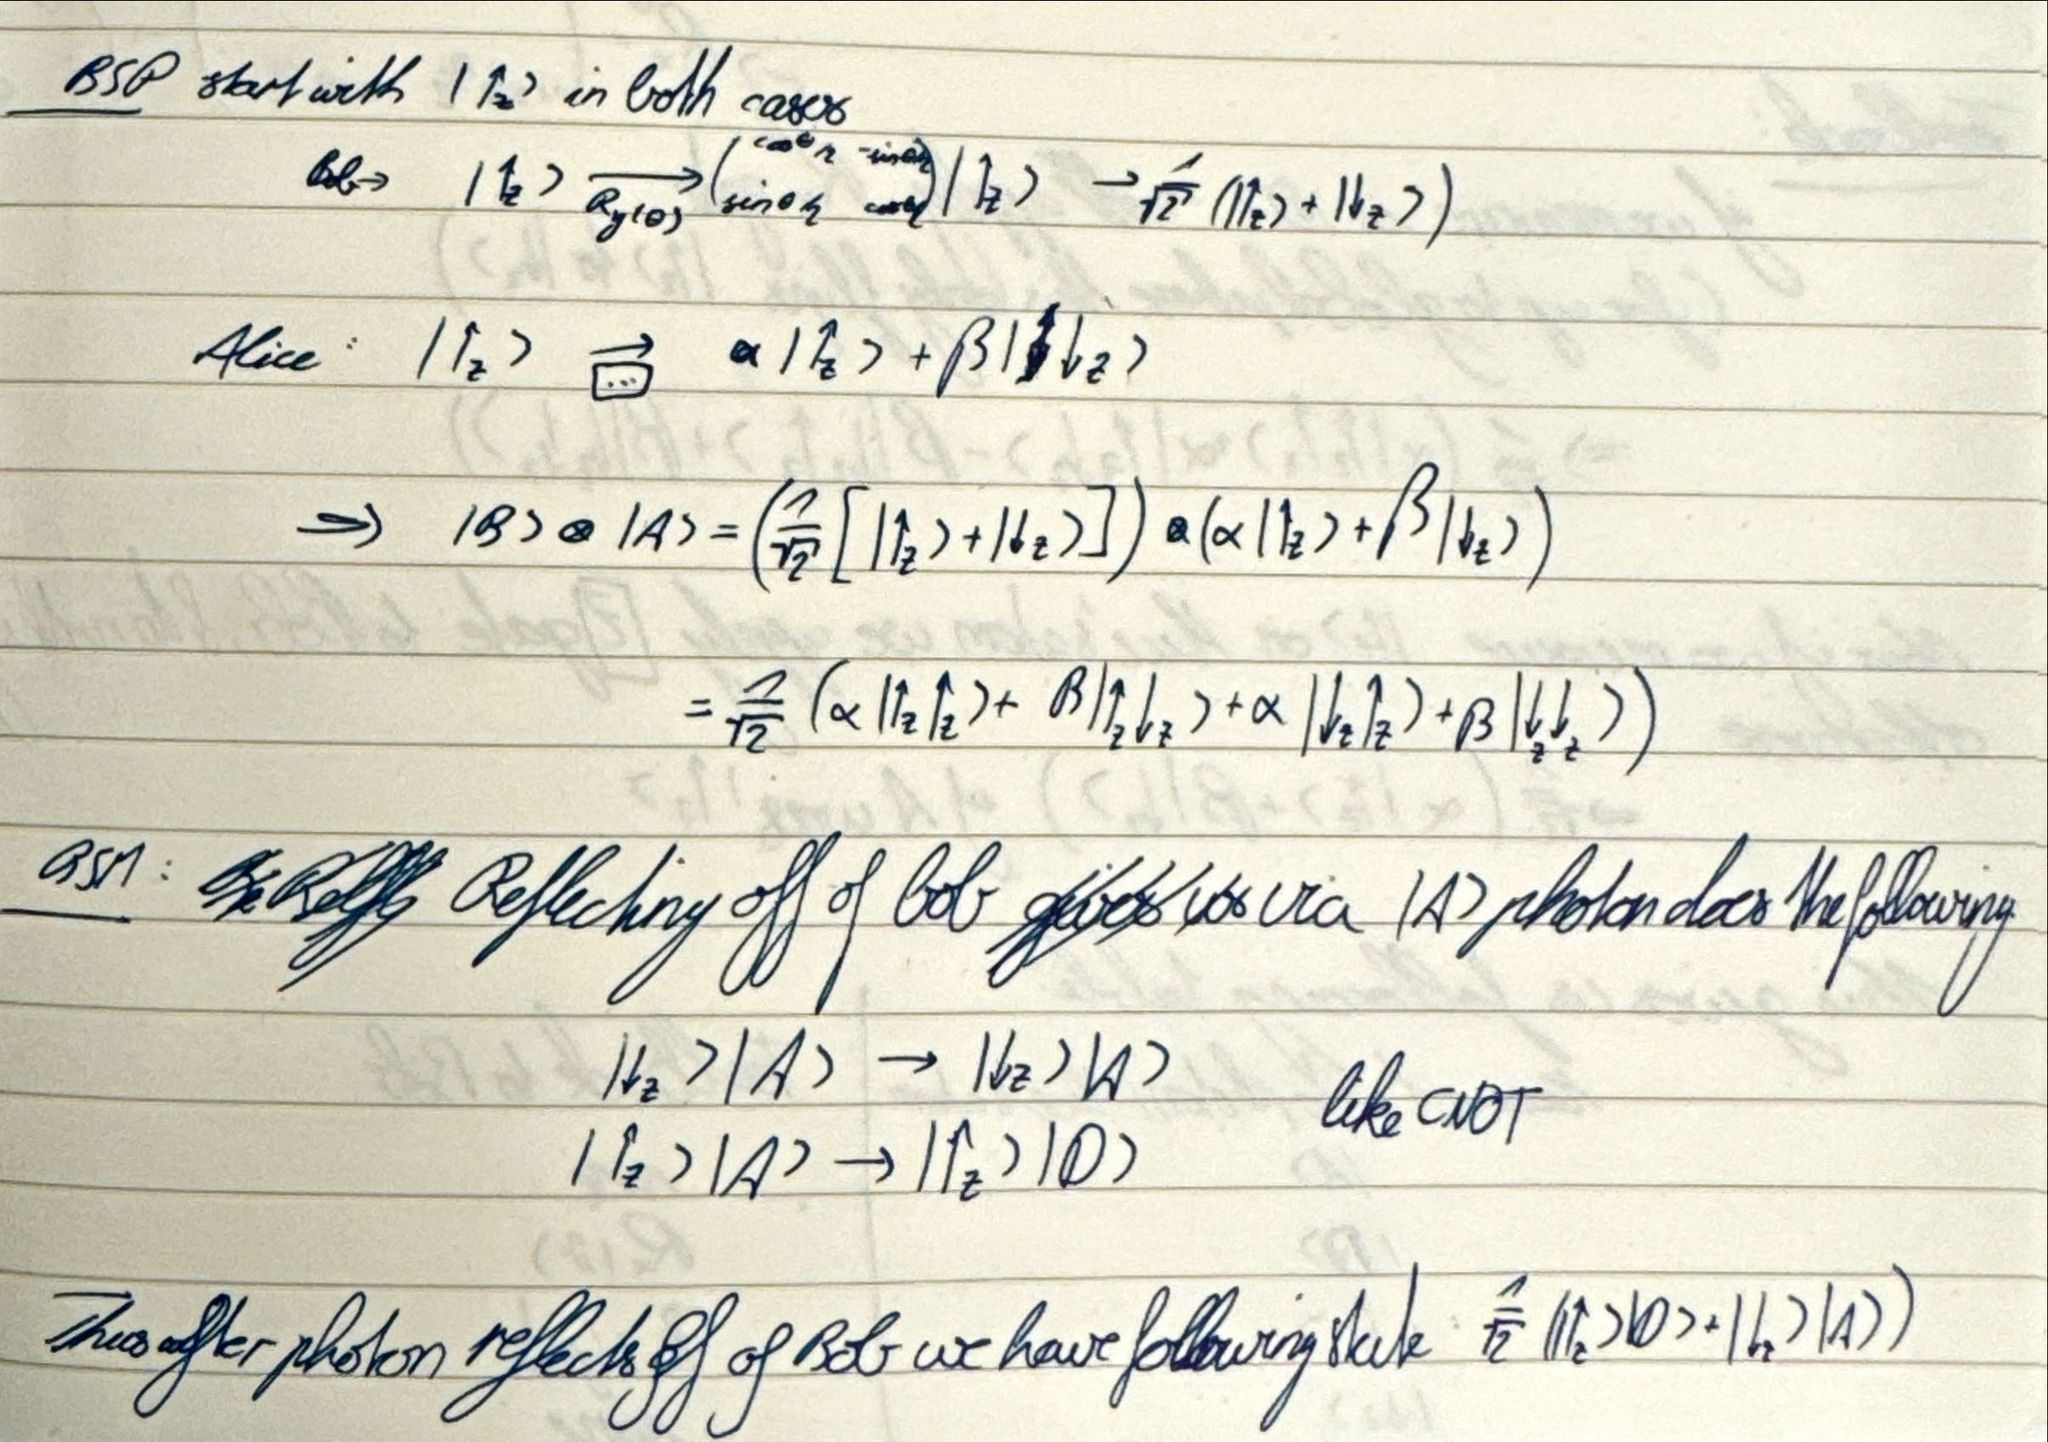 BSP start with |↑z⟩ in both cases
Bob → |↑z⟩ →Ry(θ) (cosθ/2 -sinθ/2 sinθ/2 cosθ/2) |↑z⟩ → 1/√2 (|↑z⟩ + |↓z⟩)
Alice: |↑z⟩ →[...] α|↑z⟩ + β|↓z⟩
⇒ |B⟩ ⊗ |A⟩ = (1/√2 [|↑z⟩ + |↓z⟩]) ⊗ (α|↑z⟩ + β|↓z⟩)
= 1/√2 (α|↑z↑z⟩ + β|↑z↓z⟩ + α|↓z↑z⟩ + β|↓z↓z⟩)
BSM: Reflecting off of bob via |A⟩ photon does the following
|↓z⟩|A⟩ → |↓z⟩|A⟩
like CNOT
|↑z⟩|A⟩ → |↑z⟩|D⟩
Thus after photon reflects off of Bob we have following state 1/√2 (|↑z⟩|D⟩ + |↓z⟩|A⟩)